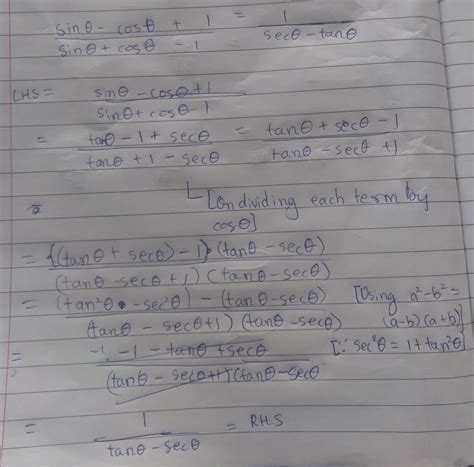 sinθ - cosθ + 1 / sinθ + cosθ - 1 = 1 / secθ - tanθ
LHS = sinθ - cosθ + 1 / sinθ + cosθ - 1
= tanθ - 1 + secθ / tanθ + 1 - secθ = tanθ + secθ - 1 / tanθ - secθ + 1
[On dividing each term by
cosθ]
= {(tanθ + secθ) - 1} (tanθ - secθ) / (tanθ - secθ + 1) (tanθ - secθ)
= (tan²θ - sec²θ) - (tanθ - secθ) / (tanθ - secθ + 1) (tanθ - secθ) [Using a² - b² =
(a-b) (a+b)]
= -1 - tanθ + secθ / (tanθ - secθ + 1) (tanθ - secθ [∵ sec²θ = 1 + tan²θ]
= 1 / tanθ - secθ = RHS